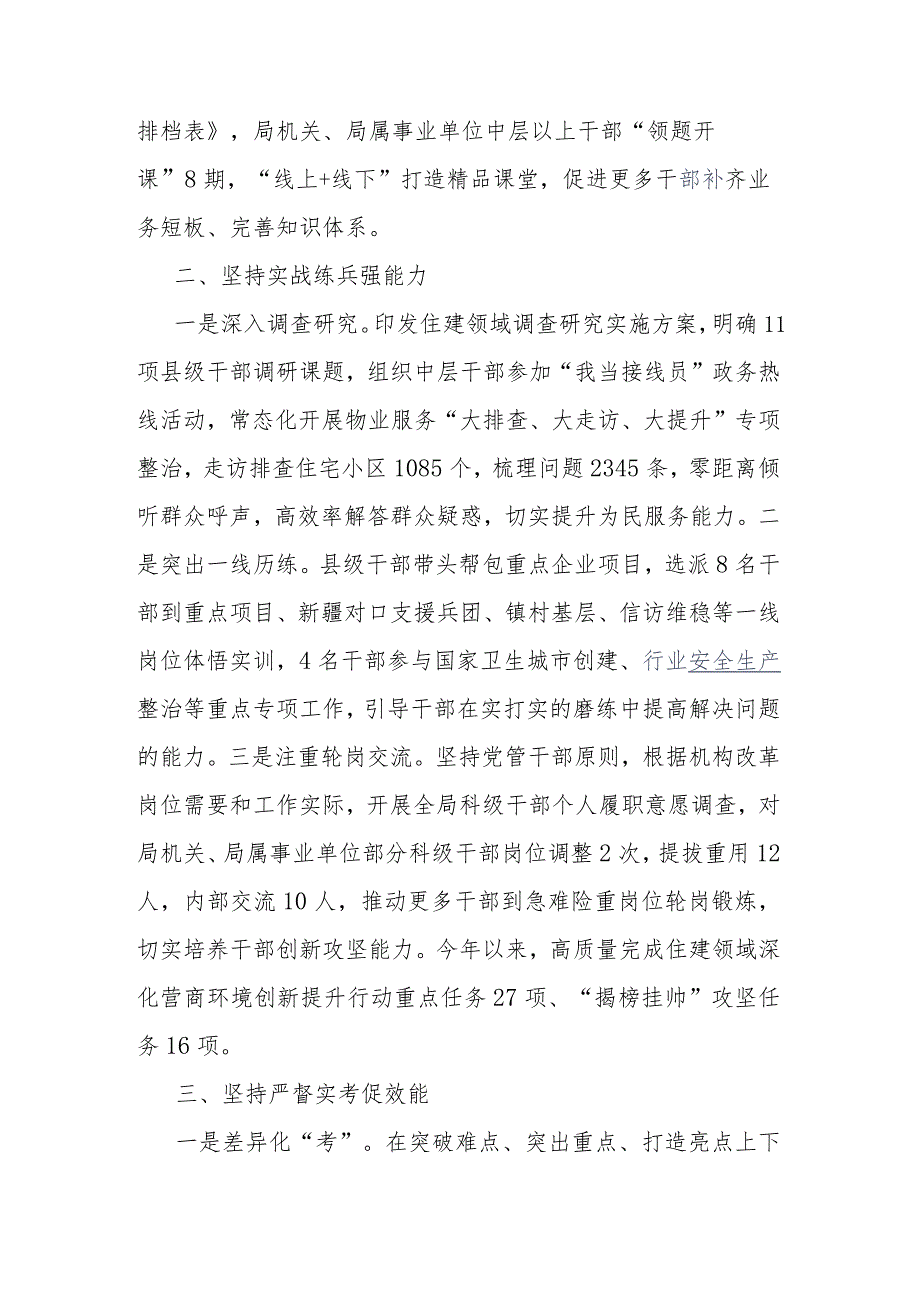 排档表》，局机关、局属事业单位中层以上干部“领题开
课”8 期，“线上+线下”打造精品课堂，促进更多干部补齐业
务短板、完善知识体系。
二、坚持实战练兵强能力
一是深入调查研究。印发住建领域调查研究实施方案，明确 11
项县级干部调研课题，组织中层干部参加“我当接线员”政务热
线活动，常态化开展物业服务“大排查、大走访、大提升”专项
整治，走访排查住宅小区 1085 个，梳理问题 2345 条，零距离倾
听群众呼声，高效率解答群众疑惑，切实提升为民服务能力。二
是突出一线历练。县级干部带头帮包重点企业项目，选派 8 名干
部到重点项目、新疆对口支援兵团、镇村基层、信访维稳等一线
岗位体悟实训，4 名干部参与国家卫生城市创建、行业安全生产
整治等重点专项工作，引导干部在实打实的磨练中提高解决问题
的能力。三是注重轮岗交流。坚持党管干部原则，根据机构改革
岗位需要和工作实际，开展全局科级干部个人履职意愿调查，对
局机关、局属事业单位部分科级干部岗位调整 2 次，提拔重用 12
人，内部交流 10 人，推动更多干部到急难险重岗位轮岗锻炼，
切实培养干部创新攻坚能力。今年以来，高质量完成住建领域深
化营商环境创新提升行动重点任务 27 项、“揭榜挂帅”攻坚任
务 16 项。
三、坚持严督实考促效能
一是差异化“考”。在突破难点、突出重点、打造亮点上下